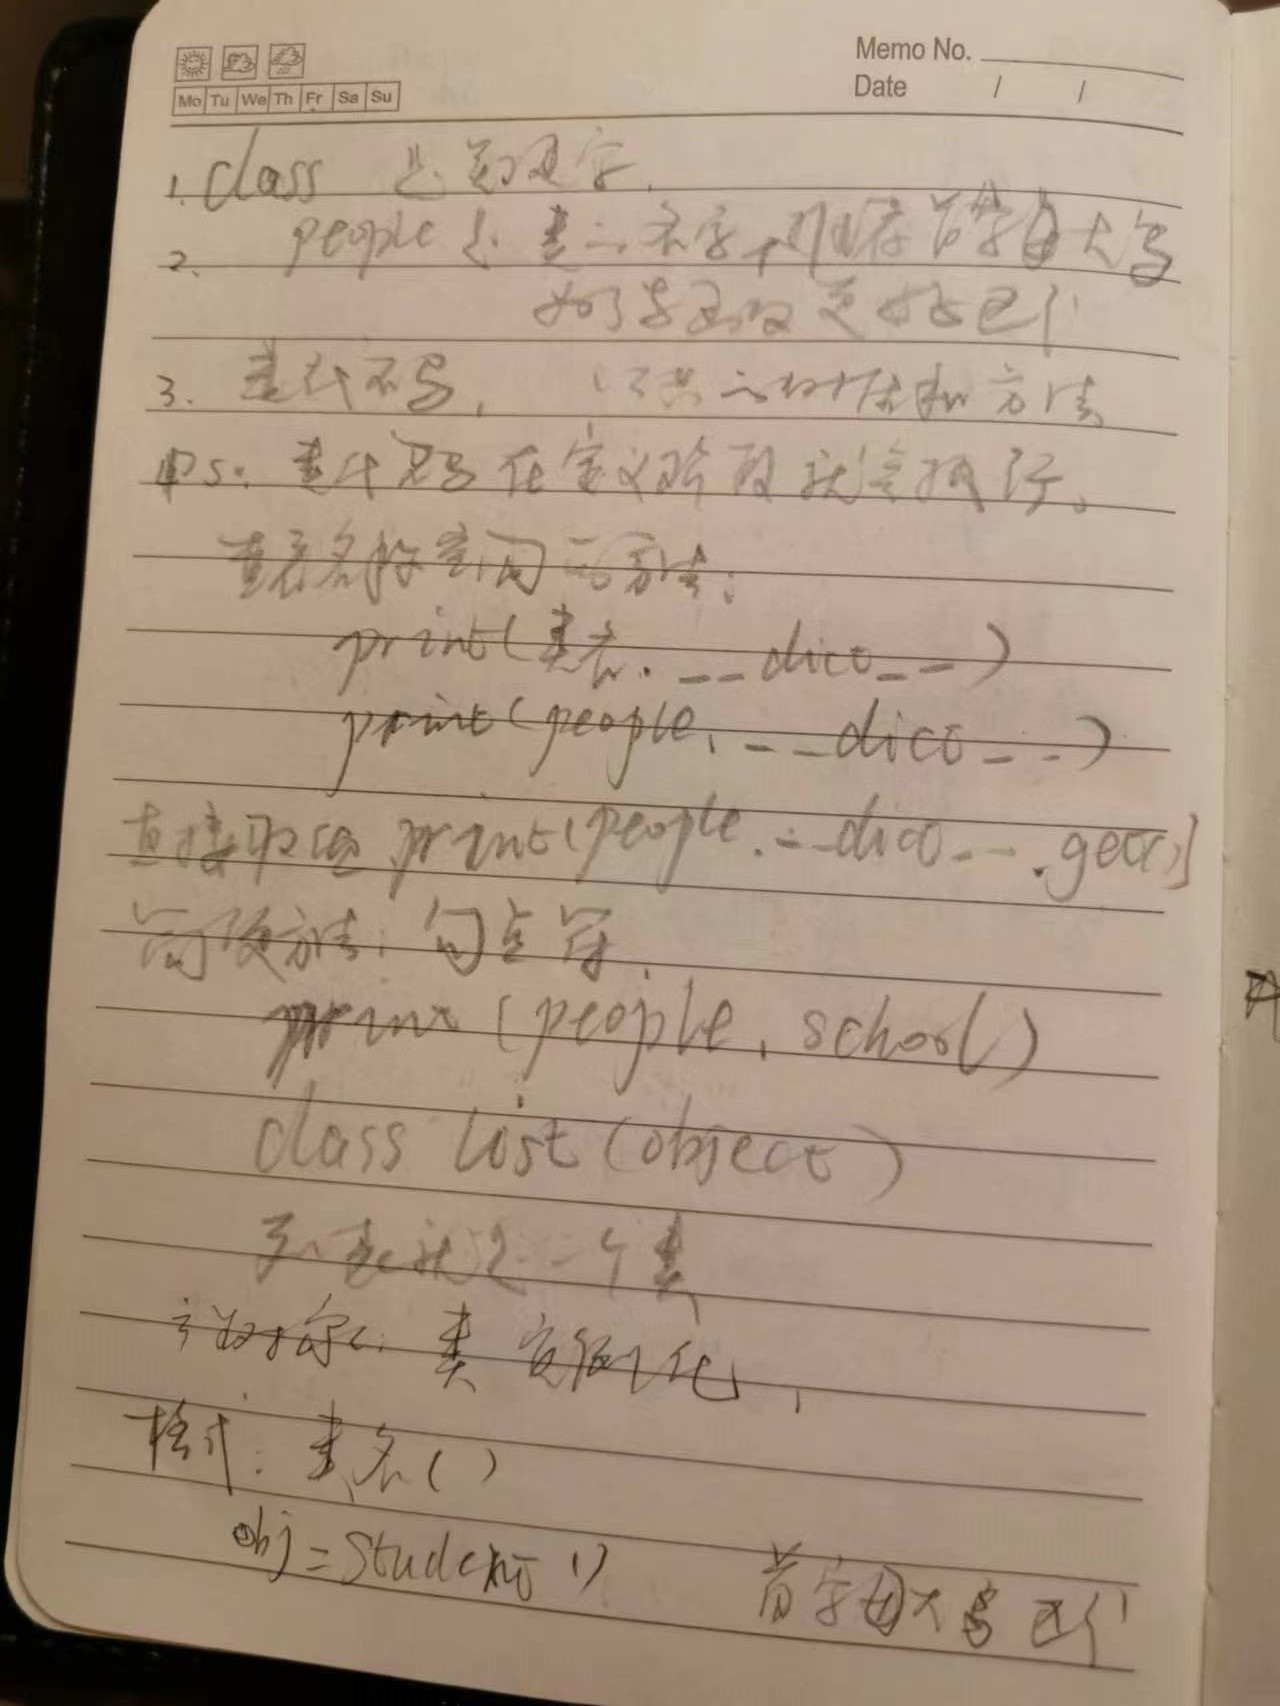 Memo No.
Date / /
Mo Tu We Th Fr Sa Su
1. class 是关键字
2. people 是类的名字, 推荐首字母大写
区分
3. 类代码, 公共的 和方法
Ps: 类代码在定义阶段就会执行。
查看名称空间的方法:
print(类名.__dict__)
print(people.__dict__)
直接取值 print(people.__dict__.get()
简便方法: 句点符
print (people.school)
class list (object)
列表就是一个类
对象: 类实例化,
格式: 类名()
obj = Student ()
首字母大写 区分